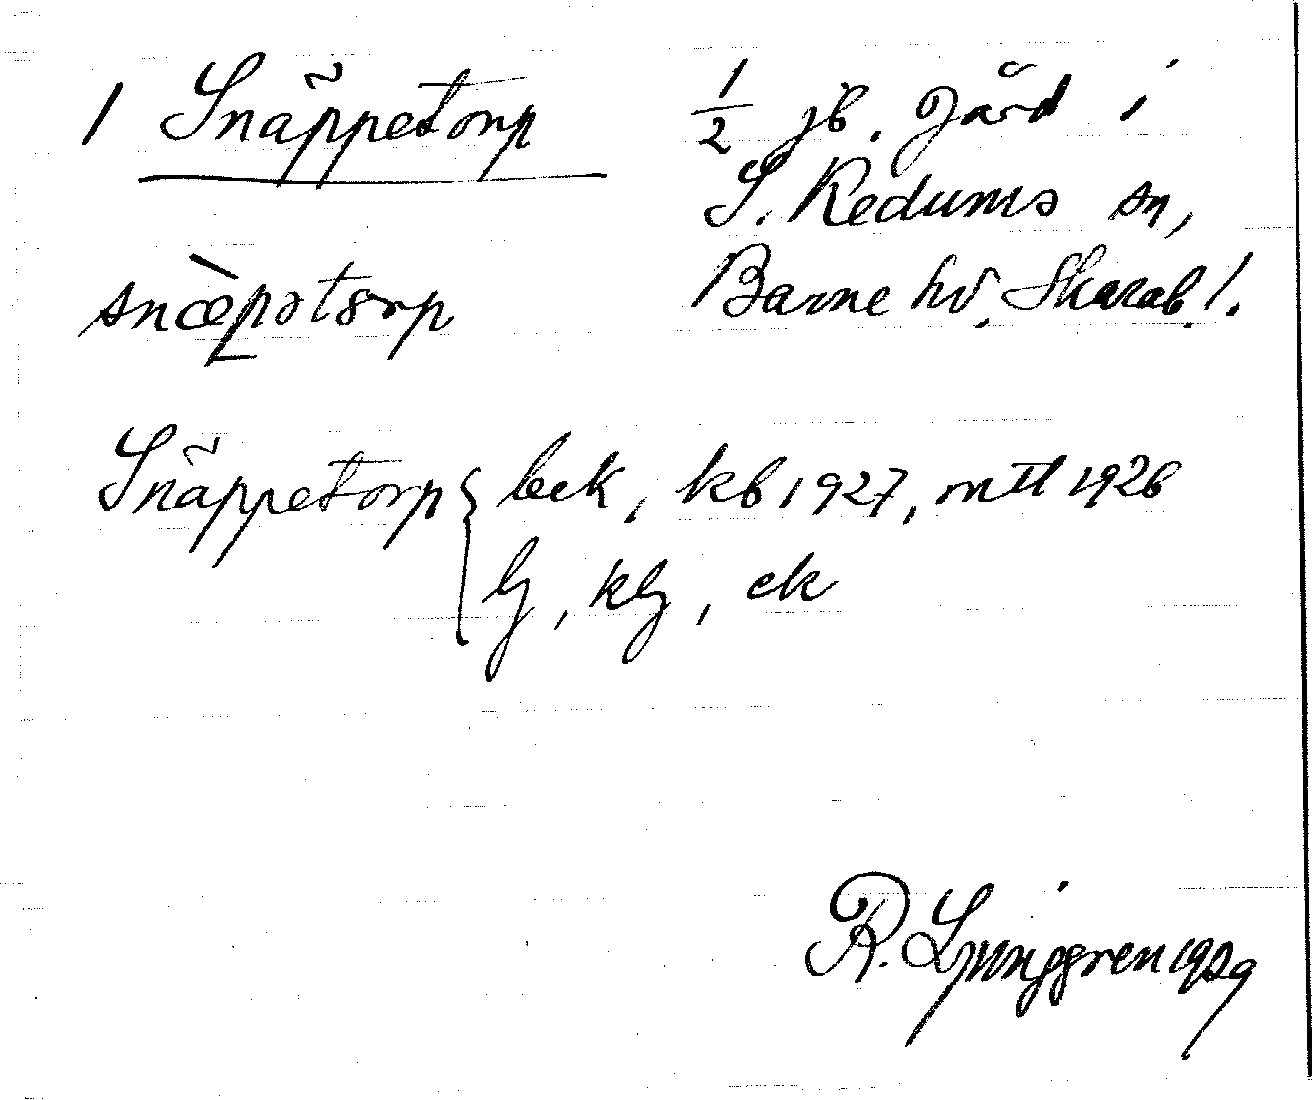 1 Snäppetorp
½ jb. gård i
S. Kedums sn,
Barne hd. Skarab. l.
snæ̀pətɔrp
Snäppetorp { bek, kb 1927, mtl 1926
lj, klj, ek
R. Ljunggren 1929